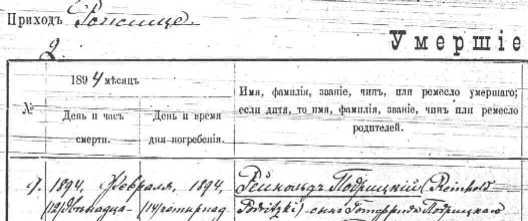 Приходъ Рожище.
2.
Умершіе
1894 мѣсяцъ
Имя, фамилія, званіе, чинъ, или ремесло умершаго;
если дитя, то имя, фамилія, званіе, чинъ или ремесло
родителей.
№
День и часъ
смерти.
День и время
дня погребенія.
1894, Февраля, 1894,
(12) двѣнадца- (14) четырнад
Рейнольдъ Подрицкій (Reinhold
Podritzki) сынъ Готфрида Подрицкаго